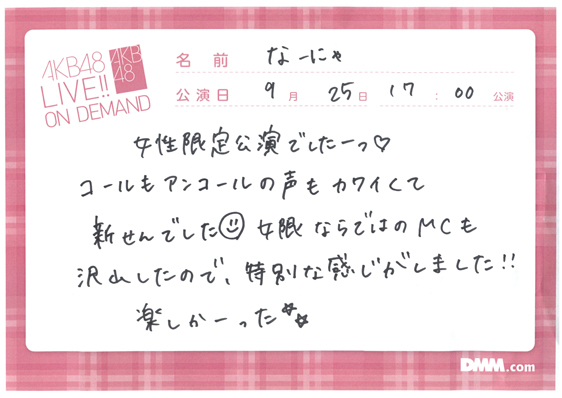 AKB48
LIVE!!
ON DEMAND
AKB
48
名前 なーにゃ
公演日 9月 25日 17:00 公演
女性限定公演でしたーっ♡
コールもアンコールの声もカワイくて
新せんでした☺ 女限ならではのMCも
沢山したので、特別な感じがしました!!
楽しかーった☆☆
DMM.com